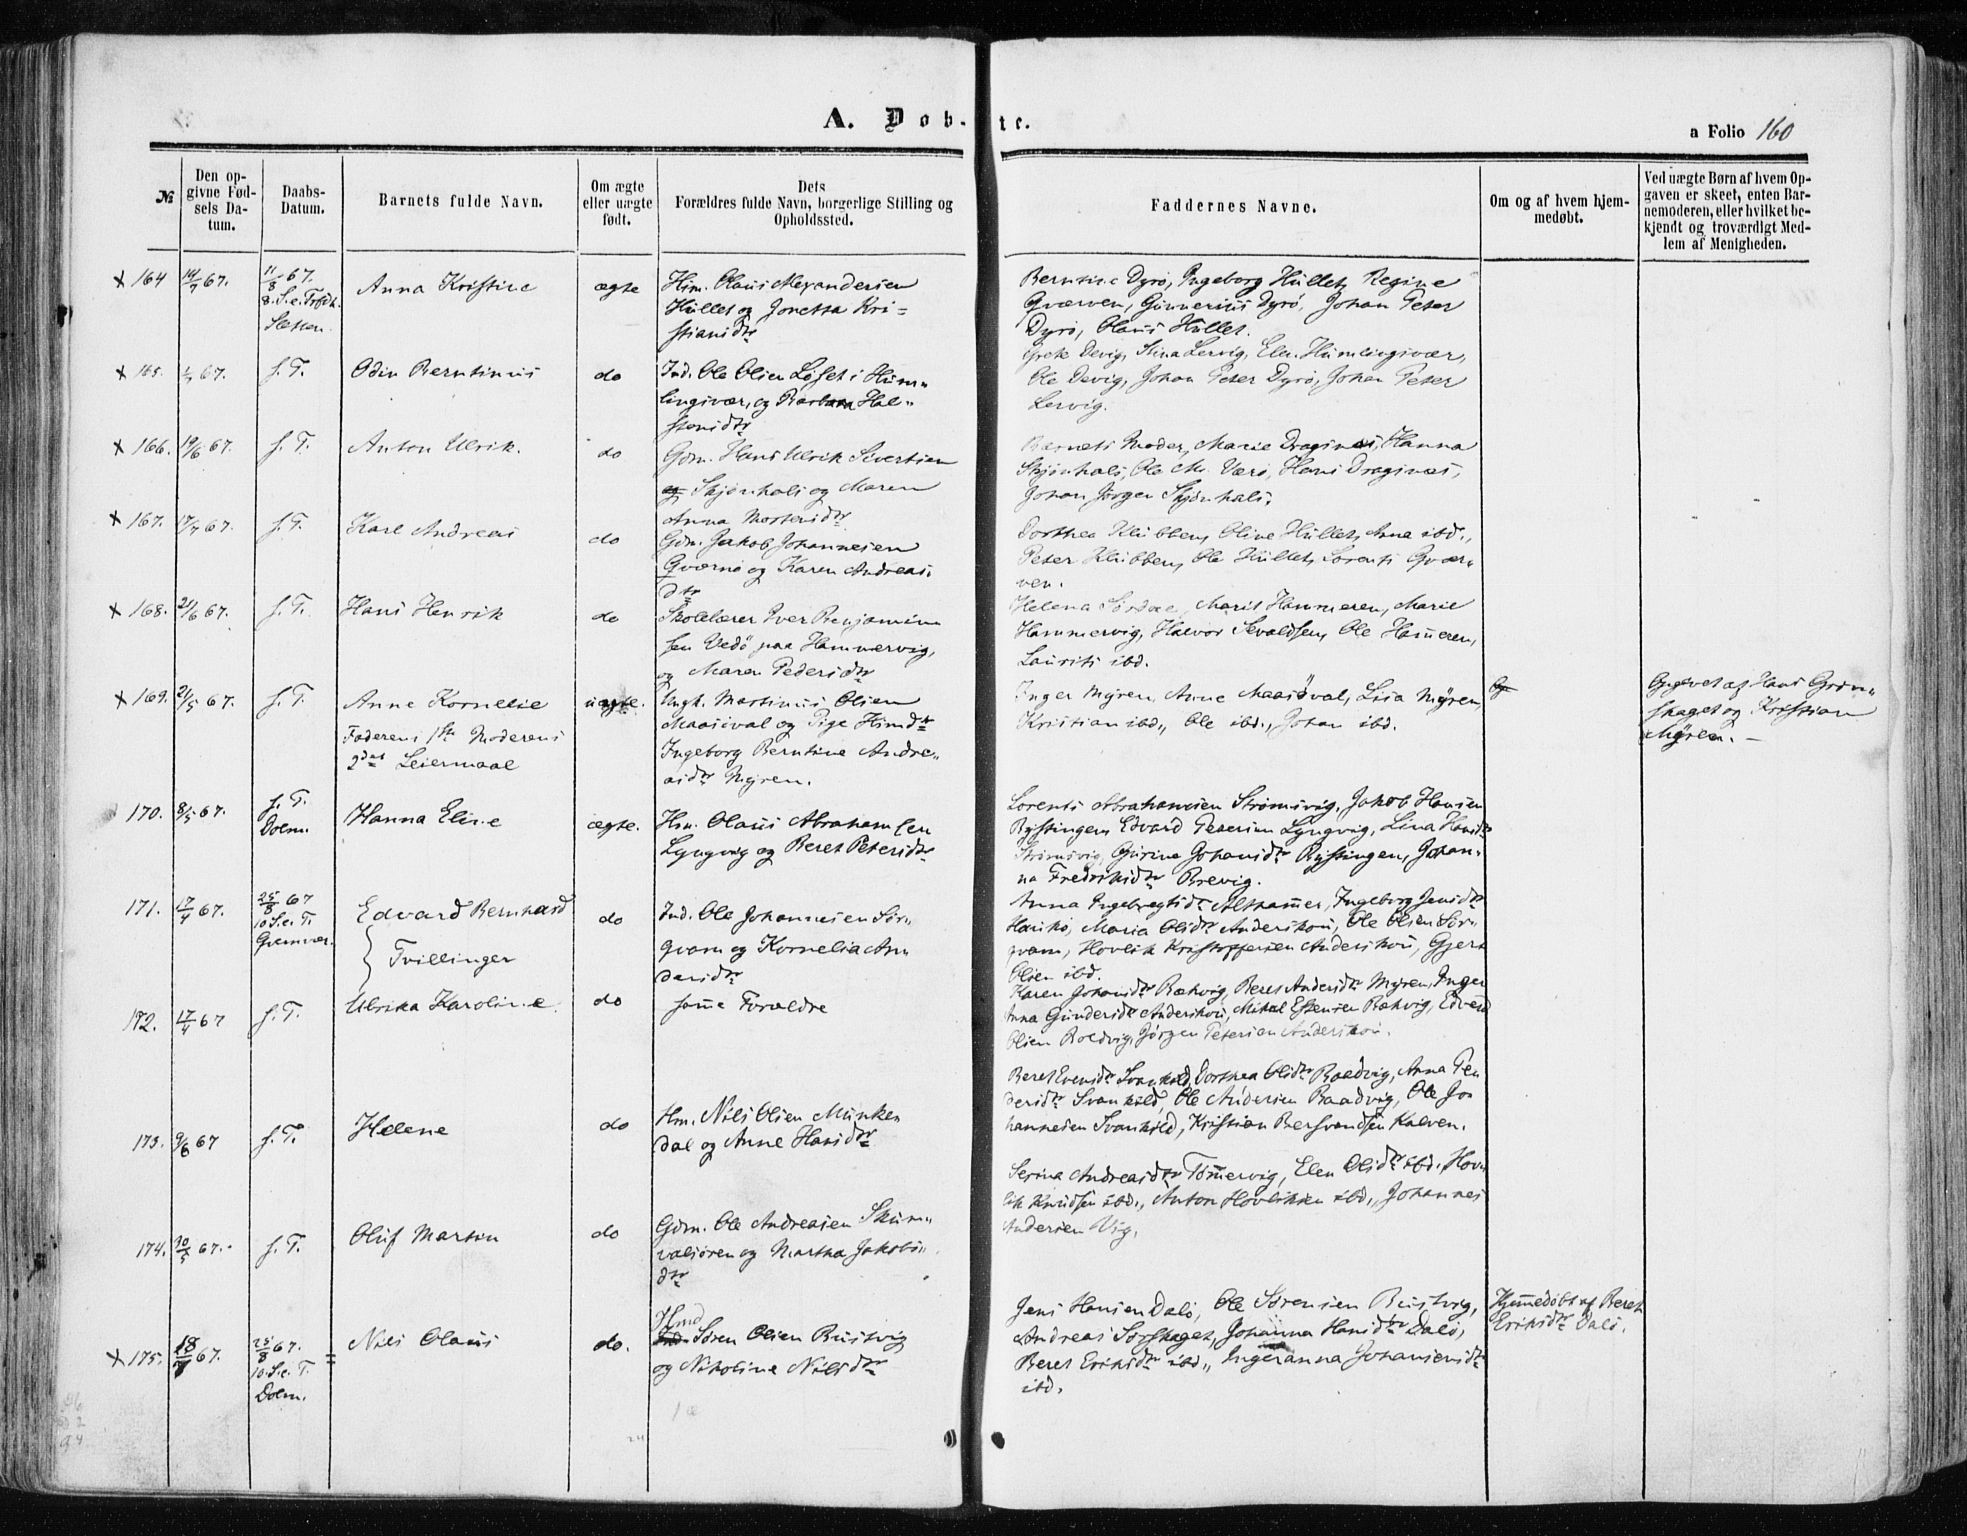 A. Døb-te.
a Folio 160
№
Den op-
givne Fød-
sels Da-
tum.
Daabs-
Datum.
Barnets fulde Navn.
Om ægte
eller uægte
født.
Dets
Forældres fulde Navn, borgerlige Stilling og
Opholdssted.
Faddernes Navne.
Om og af hvem hjem-
medøbt.
Ved uægte Børn af hvem Op-
gaven er skeet, enten Bar-
nemoderen, eller hvilket be-
kjendt og troværdigt Med-
lem af Menigheden.
164 19/7 67. 11/8 67.
8. S. e. Trfdh.
Sletten.
Anna Kristine
ægte
Hm. Olaus Alexandersen
Hullet og Jonetta Kri-
stiansdtr
Berntine Dyrø, Ingeborg Hullet, Regine
Qværven, Gunnerius Dyrø, Johan Peter
Dyrø, Olaus Hullet.
165. 67. s. T.
Odin Berntinus
do
Ind. Ole Olsen Løset i Hum-
lingsvær, og Barbara Hal-
stensdtr
Grete Devig, Stina Lervig, Elen Humlingsvær,
Ole Devig, Johan Peter Dyrø, Johan Peter
Lervig.
166. 19/6 67. s. T.
Anton Ulrik.
do
Gdm. Hans Ulrik Sivertsen
Skjønhals og Maren
Anna Mortensdtr
Barnets Moder, Marie Dragsnes, Hanna
Skjønhals, Ole M. Værø, Hans Dragsnes,
Johan Jørgen Skjønhals.
167. 17/7 67. s. T.
Karl Andreas
do
Gdm. Jakob Johannesen
Qværnø og Karen Andreas-
dtr
Dorthea Klubben, Oline Hullet, Anne ibd.,
Peter Klubben, Ole Hullet, Lorents Qvær-
ven.
168. 21/6 67. s. T.
Hans Henrik
do
Skolelærer Iver Benjamin-
sen Vedø paa Hammervig,
og Maren Pedersdtr
Helena Sørdae, Marit Hammeren, Marie
Hammervig, Halvor Sevaldsen, Ole Hammeren,
Laurits ibd.
169. 21/5 67. s. T.
Anne Kornelie
Faderens 1ste Moderens
2det Leiermaal
uægte.
Ungk. Martinus Olsen
Maasøval og Pige Hmdtr
Ingeborg Berntine Andre-
asdtr Myren.
Inger Myren, Anne Maasøval, Lisa Myren,
Kristian ibd., Ole ibd., Johan ibd.
Opgivet af Hans Grøn-
skaget og Kristian
Myren.
170. 8/5 67. s. T.
Dolm.
Hanna Eline
ægte.
Hm. Olaus Abrahamsen
Lyngvig og Beret Petersdtr
Lorents Abrahamsen Strømsvig, Jakob Hansen
Ryssingen, Edvard Petersen Lyngvig, Lina Hansdtr
Strømsvig, Gurine Johansdtr Ryssingen, Johan-
na Fredriksdtr Brevig.
171. 17/4 67. 25/8 67
10. S. e. T.
Qvenvær.
Edvard Bernhard
Tvillinger
do
Ind. Ole Johannesen Sør-
qvam og Kornelia An-
dersdtr
Anna Ingebregtsdtr Althammer, Ingeborg Jensdtr
Haukø, Maria Olsdtr Anderskou, Ole Olsen Sør-
qvam, Hovlik Kristoffersen Anderskou, Gjert
Olsen ibd.
172. 17/4 67 s. T.
Ulrika Karoline
do
samme Forældre
Karen Johansdtr Bækvig, Beret Andersdtr Myren, Inger
Anna Gundersdtr Anderskou, Mikal Estensen Bækvig, Edvard
Olsen Boedvig, Jørgen Petersen Anderskou.
173. 9/6 67 s. T.
Helene
do
Hm. Nils Olsen Munke-
dal og Anne Hansdtr
Beret Evensdtr Svankild, Dorthea Olsdtr Baadvig, Anna Pe-
dersdtr Svankild, Ole Andersen Baadvig, Ole Jo-
hannesen Svankild, Kristian Bersvendsen Kalven.
174. 30/5 67. s. T.
Oluf Martin
do
Gdm. Ole Andreasen Skum-
valsøren og Martha Jakobs-
dtr
Serina Andreasdtr Tømmervig, Elen Olsdtr ibd., Hov-
lik Knudsen ibd., Anton Hovliksen ibd., Johannes
Andersen Vig.
175. 18/7 67. 25/8 67.
10. S. e. T.
Dolm.
Nils Olaus
do.
Hmd
Søren Olsen Bustvig
og Nikoline Nilsdtr
Jens Hansen Dalø, Ole Sørensen Bustvig,
Andreas Sørskaget, Johanna Hansdtr Dalø,
Beret Eriksdtr ibd., Ingeranna Johansensdtr
ibd.
Hjemmedøbt af Beret
Eriksdtr Dalø.